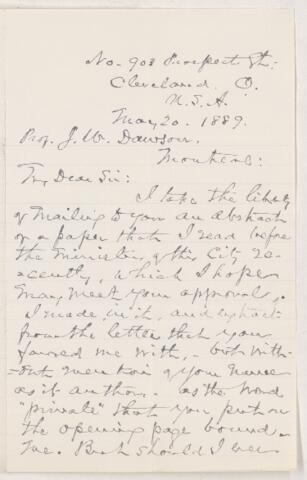 No. 908 Prospect St:
Cleveland. O.
U.S.A.
May 20. 1889.
Prof. J. W. Dawson.
Montreal:
My Dear Sir:
I take the liberty
of mailing to you an abstract
of a paper that I read before
the Ministers of this City re-
cently, which I hope
may meet your approval.
I made in it, and extract
from the letter that you
favored me with, - but with-
-out mention of your name
as it author. as the word
"private" that you put on
the opening page bound
me. But should I ever